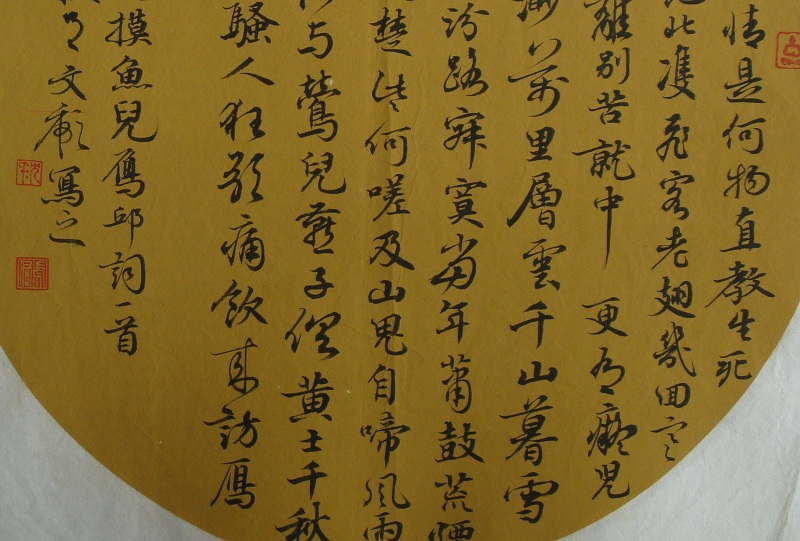 情是何物直教生死
北雙飛客老翅幾回寒
離別苦就中更有癡兒
渺萬里層雲千山暮雪
汾路寂寞當年蕭鼓荒煙
楚些何嗟及山鬼自啼風雨
與鶯兒燕子俱黃土千秋
騷人狂歌痛飲來訪鴈
摸魚兒鴈邱詞一首
文彪寫之